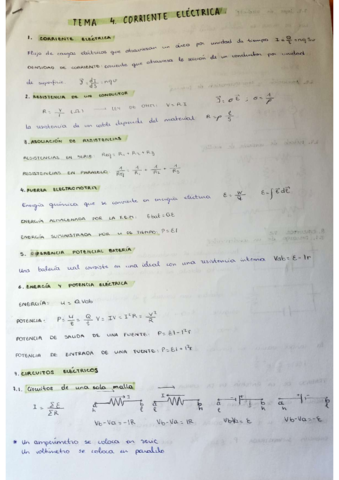 TEMA 4. CORRIENTE ELÉCTRICA
1. CORRIENTE ELÉCTRICA
Flujo de cargas eléctricas que atraviesan un área por unidad de tiempo I =
DENSIDAD DE CORRIENTE: corriente que atraviesa la sección de un conductor por unidad
de superficie
2. RESISTENCIA DE UN CONDUCTOR
La resistencia de un cable depende del material
3. ASOCIACIÓN DE RESISTENCIAS
RESISTENCIAS EN SERIE Req = R1 + R2 + R3
RESISTENCIAS EN PARALELO 1/Req = 1/R1 + 1/R2 + 1/R3
4. FUERZA ELECTROMOTRIZ
Energía química que se convierte en energía eléctrica
ENERGÍA ALMACENADA POR LA F.E.M.
ENERGÍA SUMINISTRADA POR U. DE TIEMPO, P = EI
5. DIFERENCIA POTENCIAL BATERÍA
Una batería real consiste en una ideal con una resistencia interna Vab = E - Ir
6. ENERGÍA Y POTENCIA ELÉCTRICA
ENERGÍA: U = QVab
POTENCIA: P = U/t = Q/t V = IV = I²R = V²/R
POTENCIA DE SALIDA DE UNA FUENTE: P = EI - I²r
POTENCIA DE ENTRADA DE UNA FUENTE: P = EI + I²r
7. CIRCUITOS ELÉCTRICOS
7.1. Circuitos de una sola malla
I = ΣE/ΣR
Vb-Va = -IR Vb-Va = IR Vb-Va = E Vb-Va = -E
* Un amperímetro se coloca en serie
Un voltímetro se coloca en paralelo